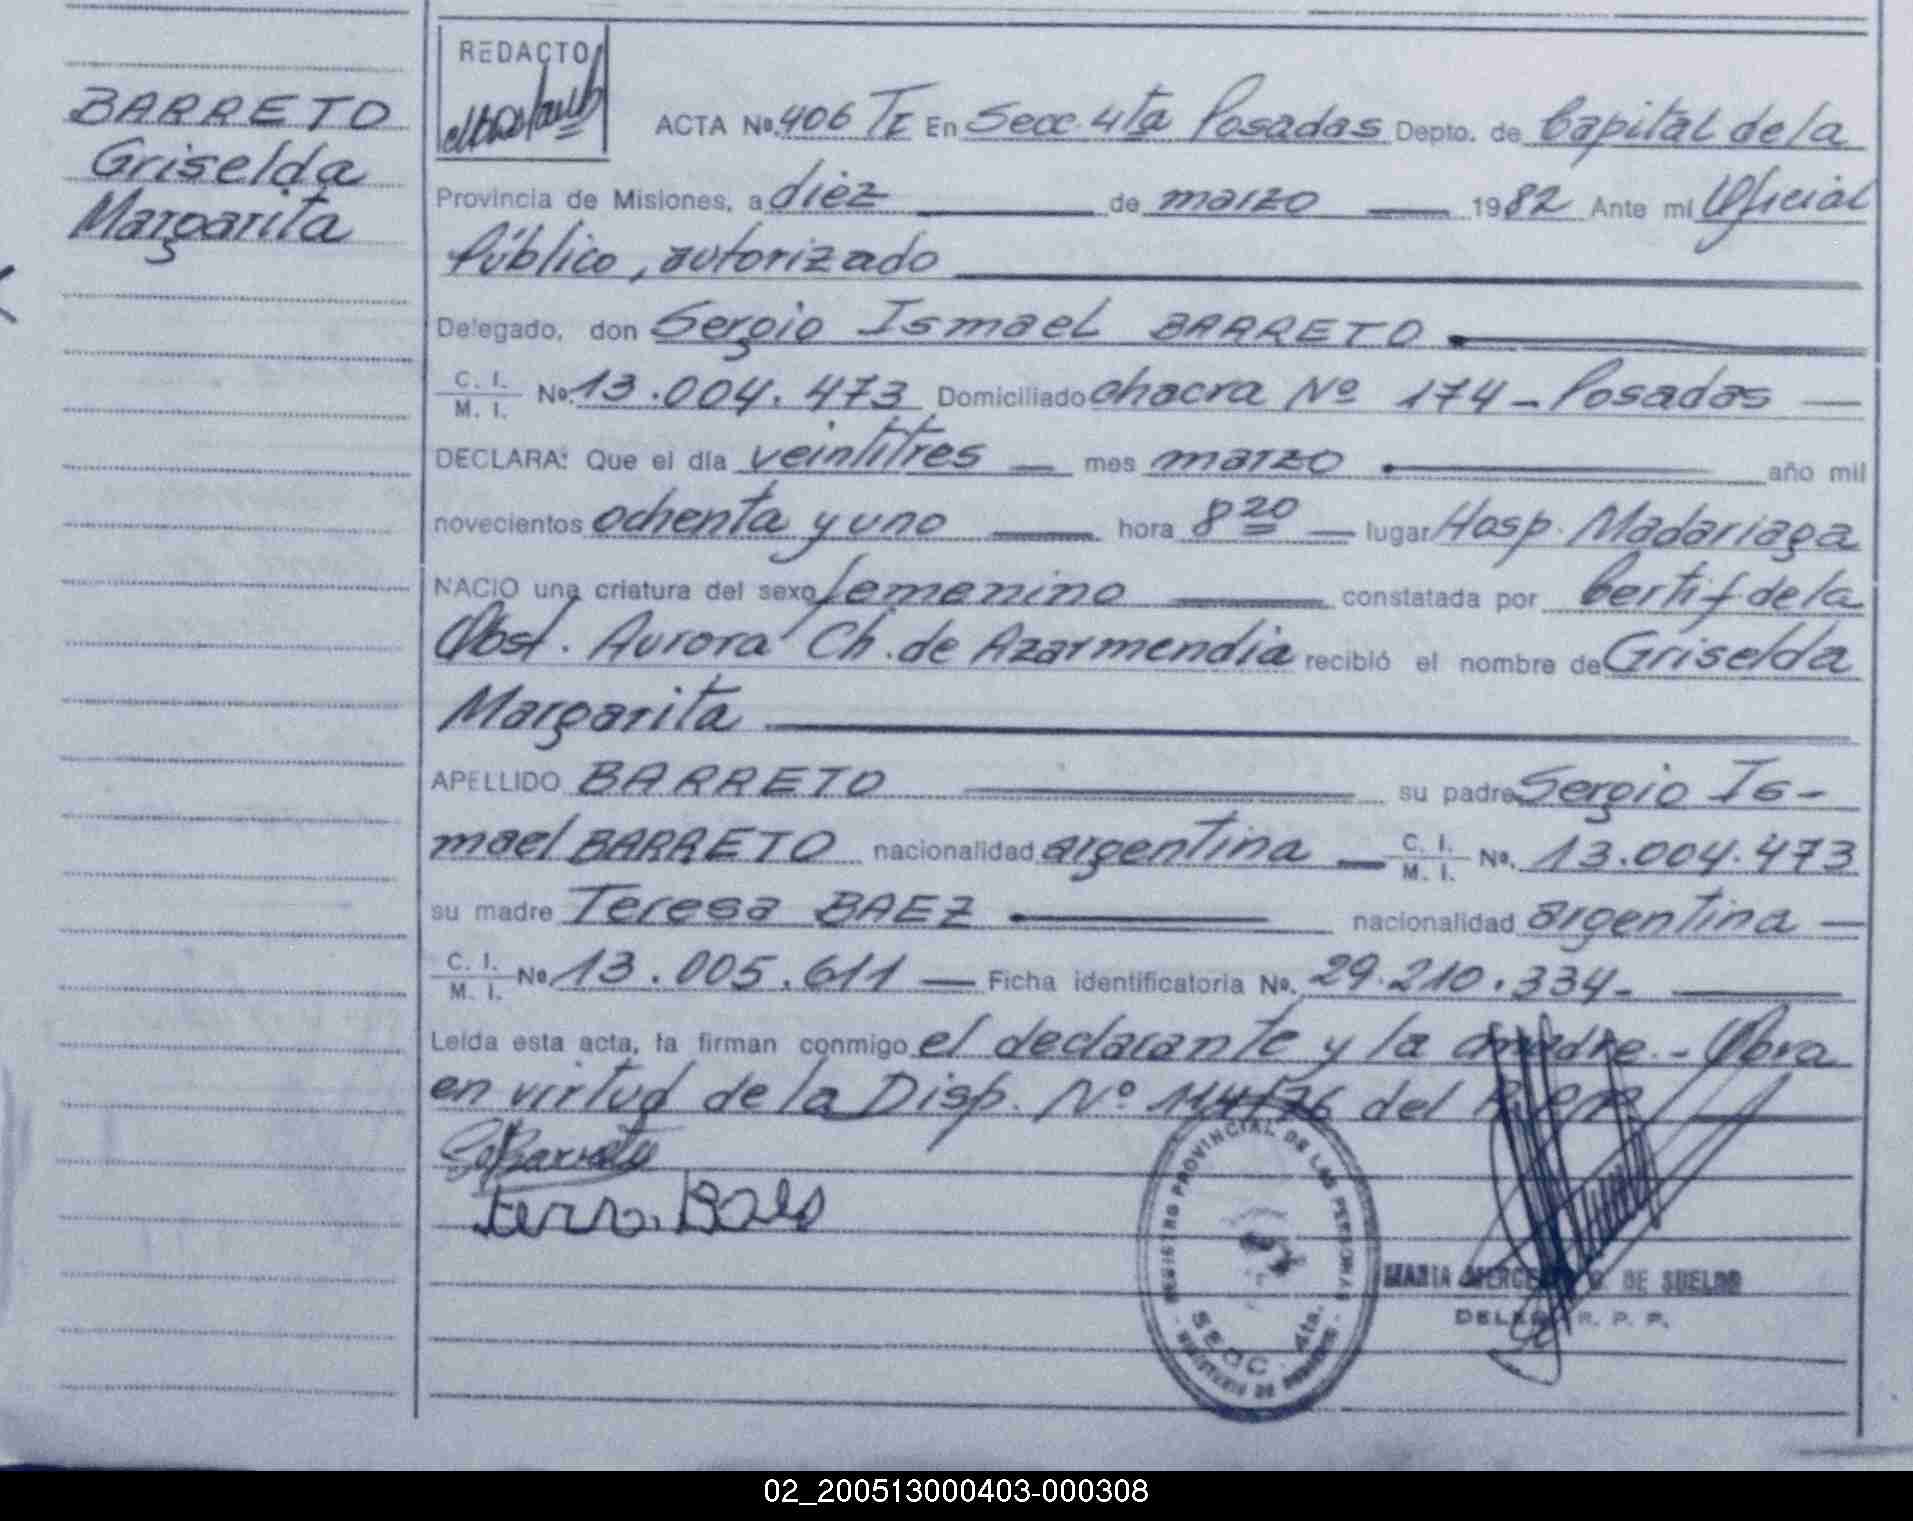 BARRETO
Griselda
Margarita
REDACTO
ACTA No. 406 TE En Secc. 4ta Posadas Depto. de Capital de la
Provincia de Misiones, a diez de marzo 1982 Ante mi Oficial
Público, autorizado
Delegado, don Sergio Ismael BARRETO
C. I. / M. I. No. 13.004.473 Domiciliado chacra Nº 174 - Posadas
DECLARA: Que el día veintitres mes marzo año mil
novecientos ochenta y uno hora 8 20 lugar Hosp. Madariaga
NACIO una criatura del sexo femenino constatada por Certif de la
Obst. Aurora Ch. de Azarmendia recibió el nombre de Griselda
Margarita
APELLIDO BARRETO su padre Sergio Is-
mael BARRETO nacionalidad argentina C. I. / M. I. No. 13.004.473
su madre Teresa BAEZ nacionalidad argentina
C. I. / M. I. No 13.005.611 Ficha identificatoria No. 29.210.334-
Leída esta acta, la firman conmigo el declarante y la madre.- Obra
en virtud de la Disp. Nº 114/76 del
Barreto
REGISTRO PROVINCIAL DE LAS PERSONAS
SECC. 4ta.
MINISTERIO DE GOBIERNO
MARIA DE SUELDO
R. P. P.
02_200513000403-000308